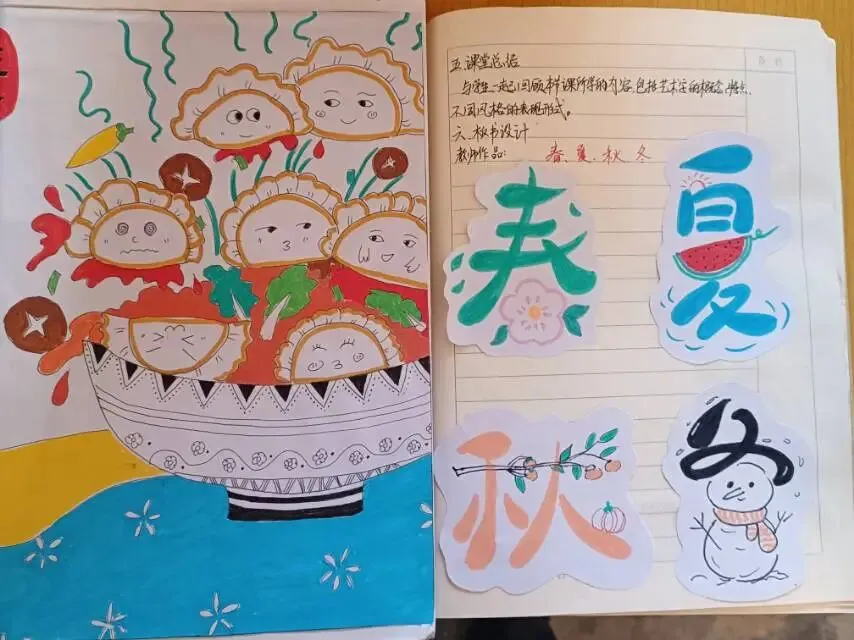 五.课堂总结
与学生一起回顾本课所学的内容,包括艺术字的概念,特点,
不同风格的表现形式。
六、板书设计
教师作品: 春、夏、秋 冬
春
夏
秋
冬